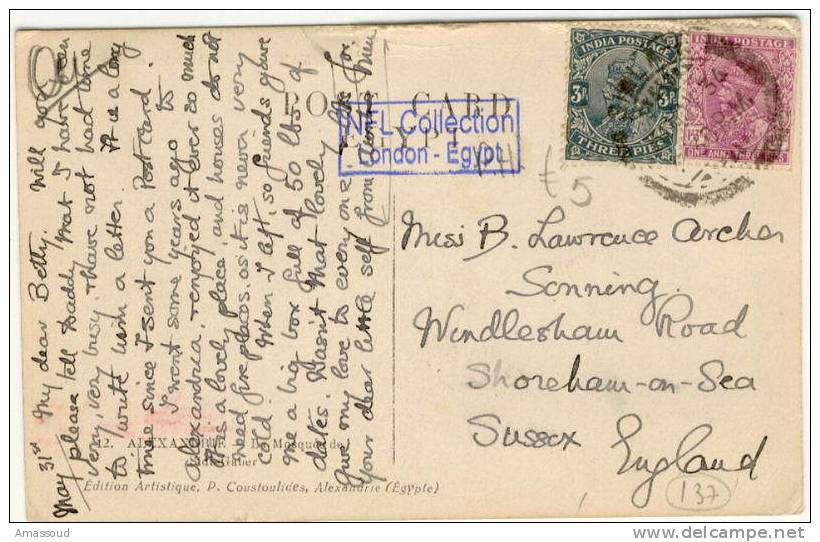 May 31st My dear Betty. Will you
please tell Daddy that I have been
very, very busy, & have not had time
to write him a letter. It is a long
time since I sent you a Postcard.
I went some years ago to
Alexandria, & enjoyed it ever so much
It is a lovely place, and houses do not
need fireplaces, as it is never very
cold. When I left, so friends gave
me a big box full of 50 lbs of
dates. Wasn't that lovely
Give my love to every one
Your dear little self from
POST CARD
EGYPT
NTL Collection
London - Egypt
INDIA POSTAGE
3P. 3P.
THREE PIES
INDIA POSTAGE
ONE ANNA THREE PIES
£5
Miss B. Lawrence Archer
Sonning
Windlesham Road
Shoreham-on-Sea
Sussex
England
137
12. ALEXANDRIE - La Mosquée de
Sidi Gaber
Édition Artistique, P. Coustoulides, Alexandrie (Égypte)
Amassoud
delcampe.net